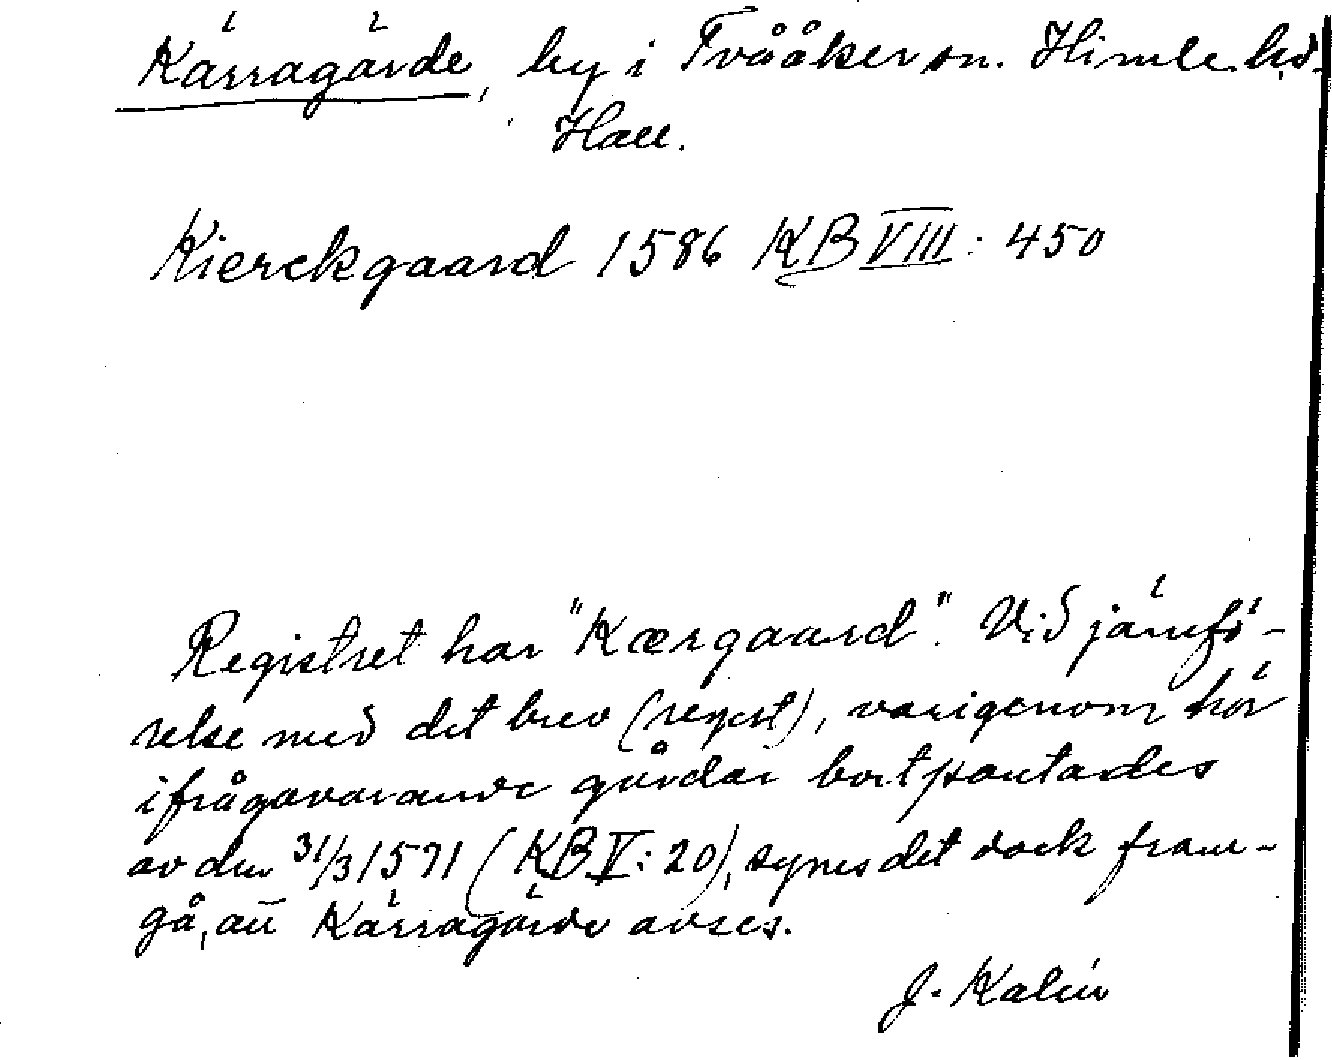 Kärragärde, by i Tvååker sn. Himle hd.
Hall.
Kierckgaard 1586 KB VIII: 450
Registret har "Kærgaard". Vid jämfö-
relse med det brev (regest), varigenom här
ifrågavarande gårdar bortpantades
av den 31/3 1571 (KB V: 20), synes det dock fram-
gå, att Kärragärde avses.
J. Kalén